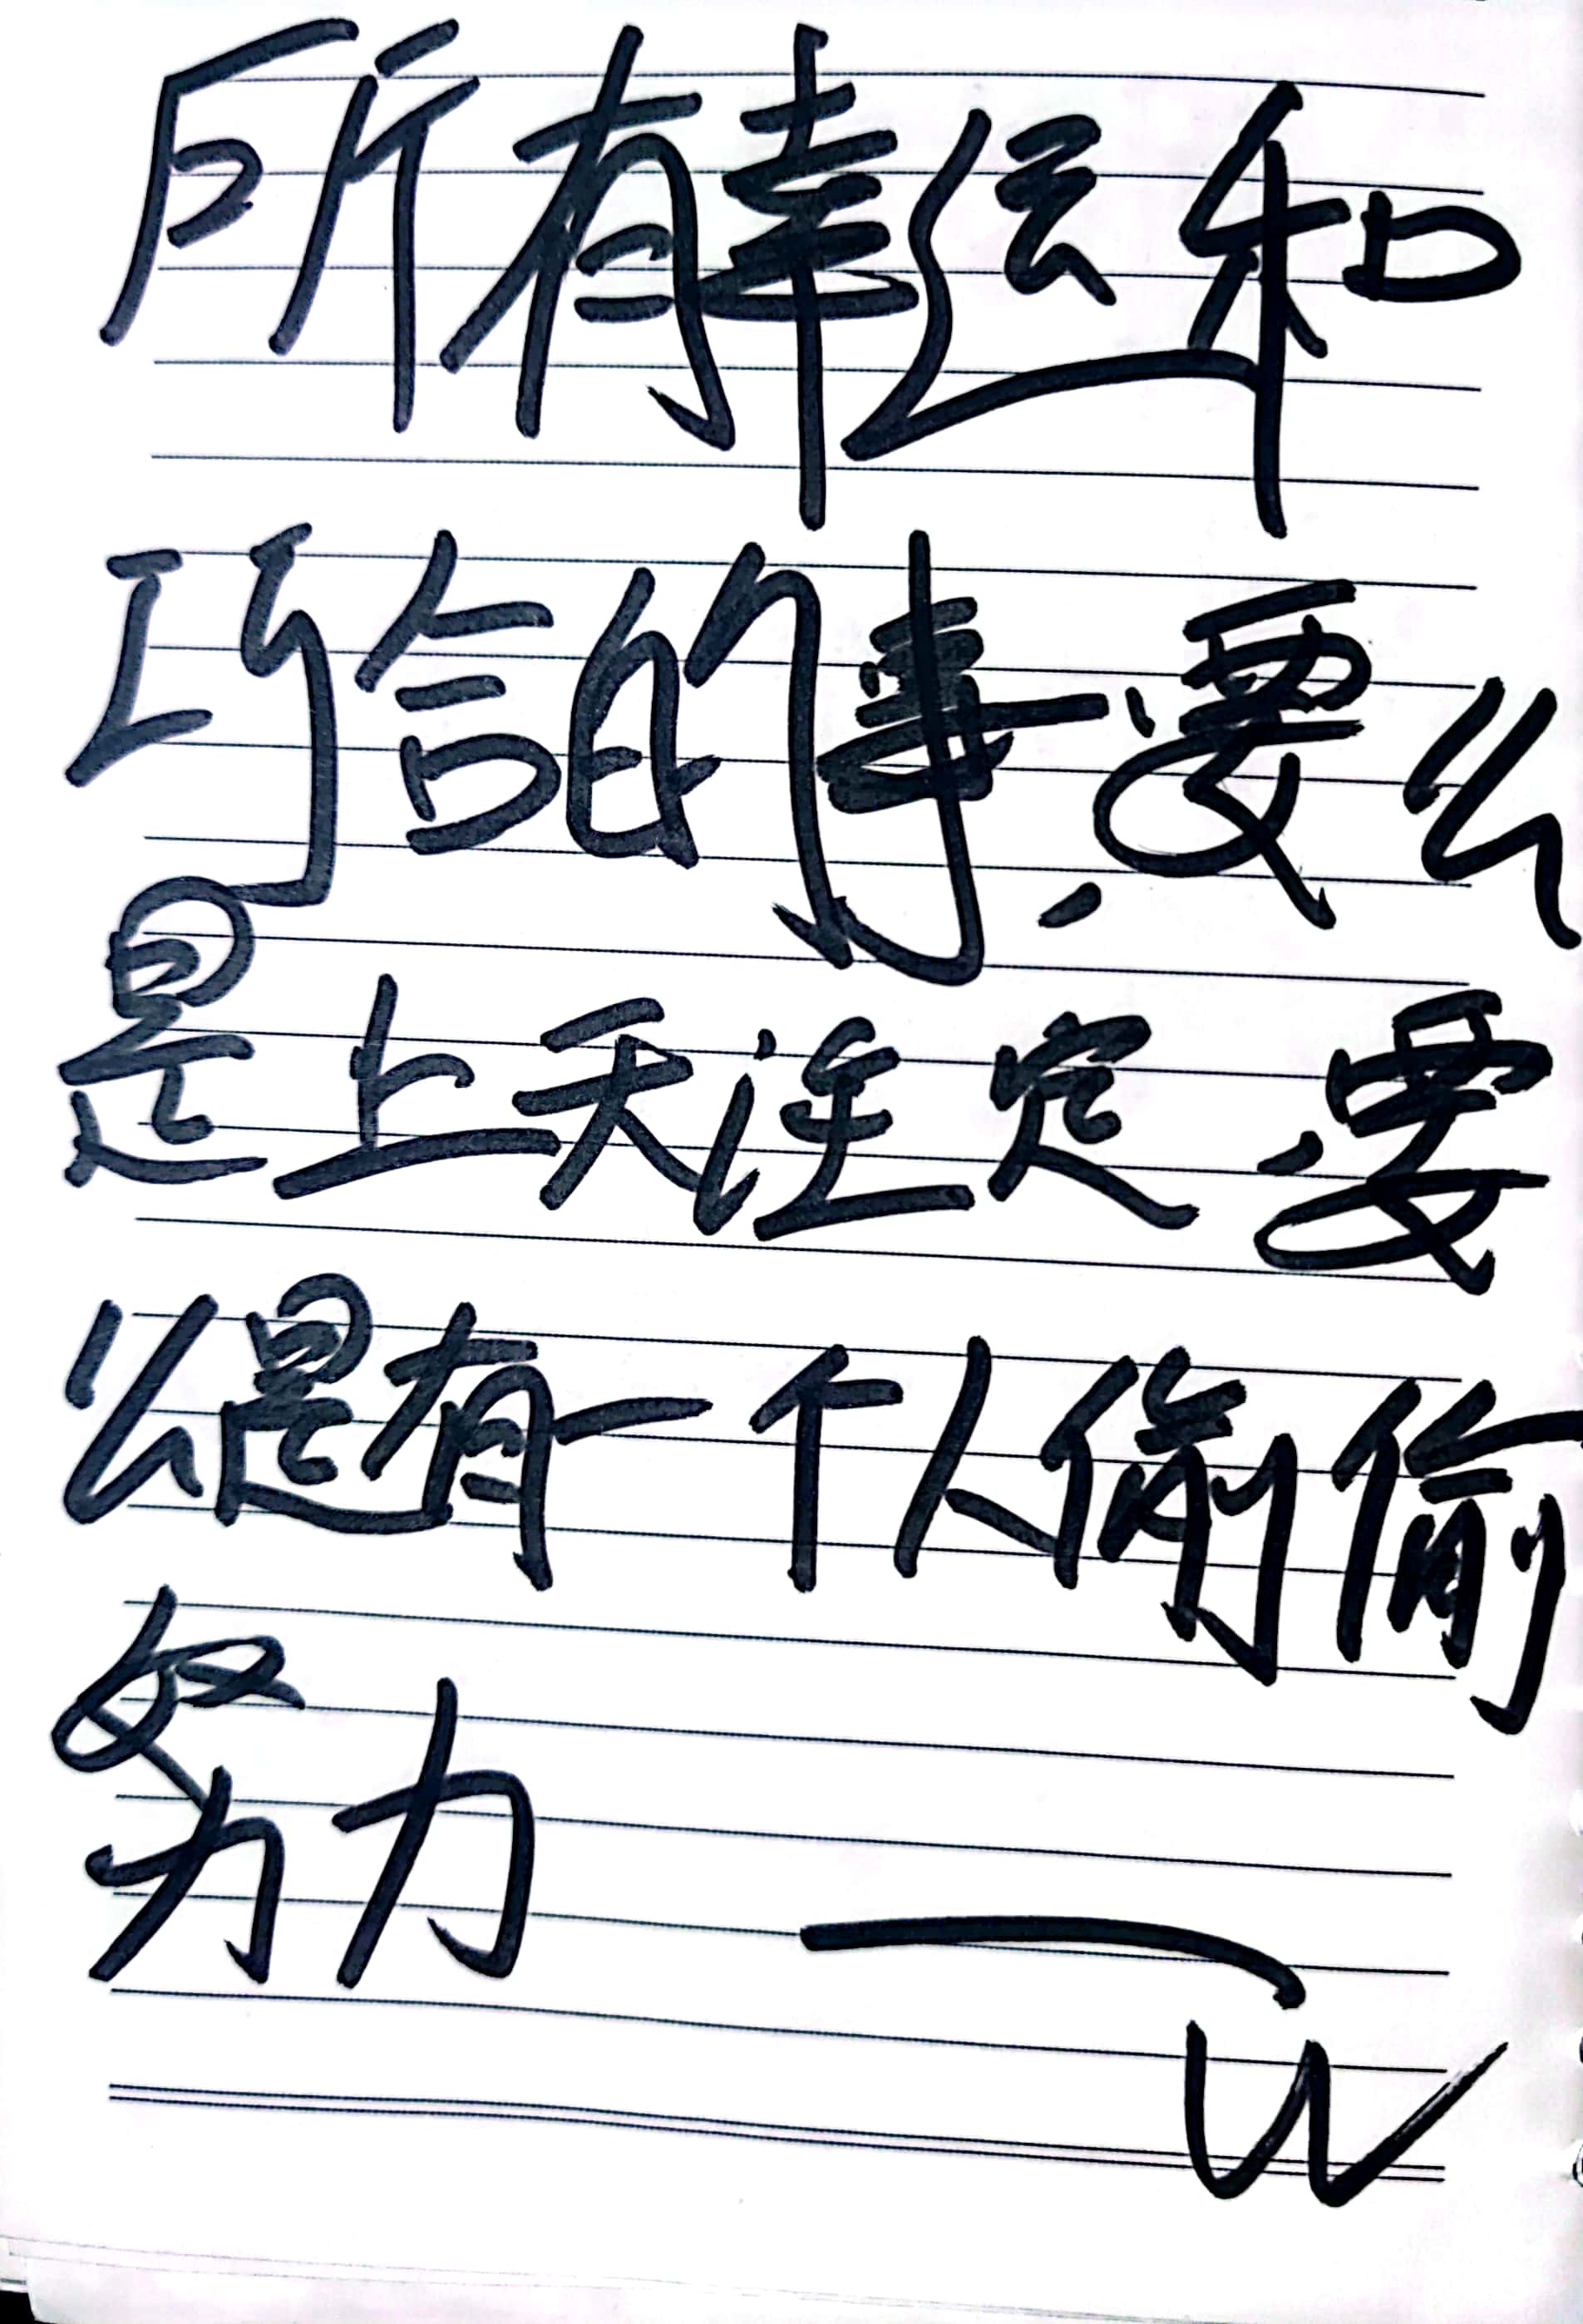 所有幸运和
巧合的事,要么
是上天注定,要
么是有一个人偷偷
努力
一
W